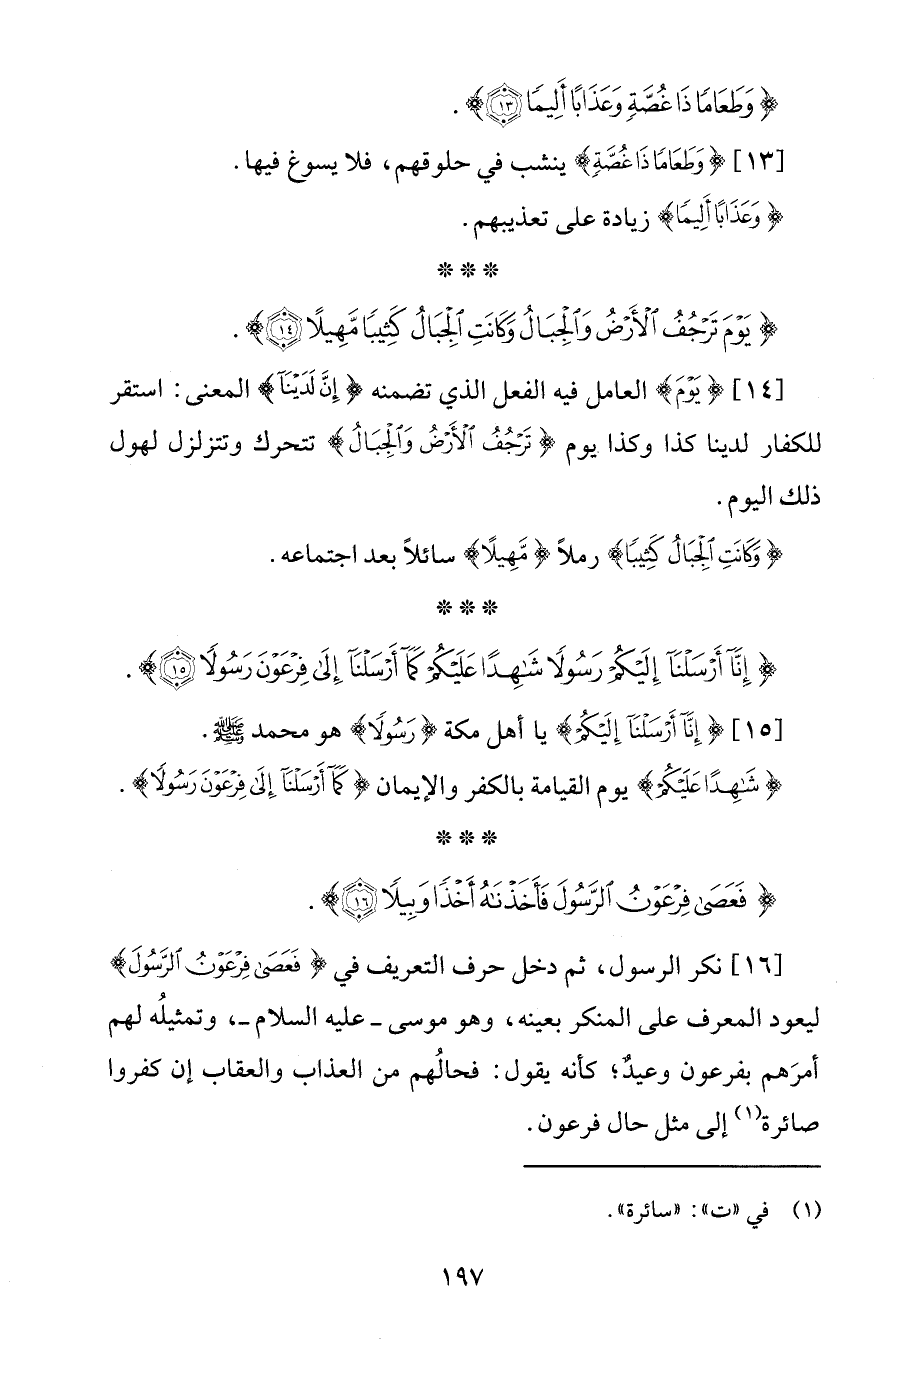 ﴿ وَطَعَامًا ذَا غُصَّةٍ وَعَذَابًا أَلِيمًا ۝١٣ ﴾ .
[١٣] ﴿ وَطَعَامًا ذَا غُصَّةٍ﴾ ينشب في حلوقهم، فلا يسوغ فيها.
﴿ وَعَذَابًا أَلِيمًا﴾ زيادة على تعذيبهم.
* * *
﴿ يَوْمَ تَرْجُفُ ٱلْأَرْضُ وَٱلْجِبَالُ وَكَانَتِ ٱلْجِبَالُ كَثِيبًا مَّهِيلًا ۝١٤ ﴾ .
[١٤] ﴿ يَوْمَ﴾ العامل فيه الفعل الذي تضمنه ﴿ إِنَّ لَدَيْنَآ﴾ المعنى: استقر
للكفار لدينا كذا وكذا يوم ﴿ تَرْجُفُ ٱلْأَرْضُ وَٱلْجِبَالُ﴾ تتحرك وتتزلزل لهول
ذلك اليوم.
﴿ وَكَانَتِ ٱلْجِبَالُ كَثِيبًا﴾ رملاً ﴿ مَّهِيلًا﴾ سائلاً بعد اجتماعه.
* * *
﴿ إِنَّآ أَرْسَلْنَآ إِلَيْكُمْ رَسُولًا شَٰهِدًا عَلَيْكُمْ كَمَآ أَرْسَلْنَآ إِلَىٰ فِرْعَوْنَ رَسُولًا ۝١٥ ﴾ .
[١٥] ﴿ إِنَّآ أَرْسَلْنَآ إِلَيْكُمْ﴾ يا أهل مكة ﴿ رَسُولًا﴾ هو محمد ﷺ.
﴿ شَٰهِدًا عَلَيْكُمْ﴾ يوم القيامة بالكفر والإيمان ﴿ كَمَآ أَرْسَلْنَآ إِلَىٰ فِرْعَوْنَ رَسُولًا﴾ .
* * *
﴿ فَعَصَىٰ فِرْعَوْنُ ٱلرَّسُولَ فَأَخَذْنَٰهُ أَخْذًا وَبِيلًا ۝١٦ ﴾ .
[١٦] نكر الرسول، ثم دخل حرف التعريف في ﴿ فَعَصَىٰ فِرْعَوْنُ ٱلرَّسُولَ﴾
ليعود المعرف على المنكر بعينه، وهو موسى ـ عليه السلام ـ، وتمثيلُه لهم
أمرَهم بفرعون وعيدٌ؛ كأنه يقول: فحالُهم من العذاب والعقاب إن كفروا
صائرة(١) إلى مثل حال فرعون.
(١) في «ت»: «سائرة».
١٩٧